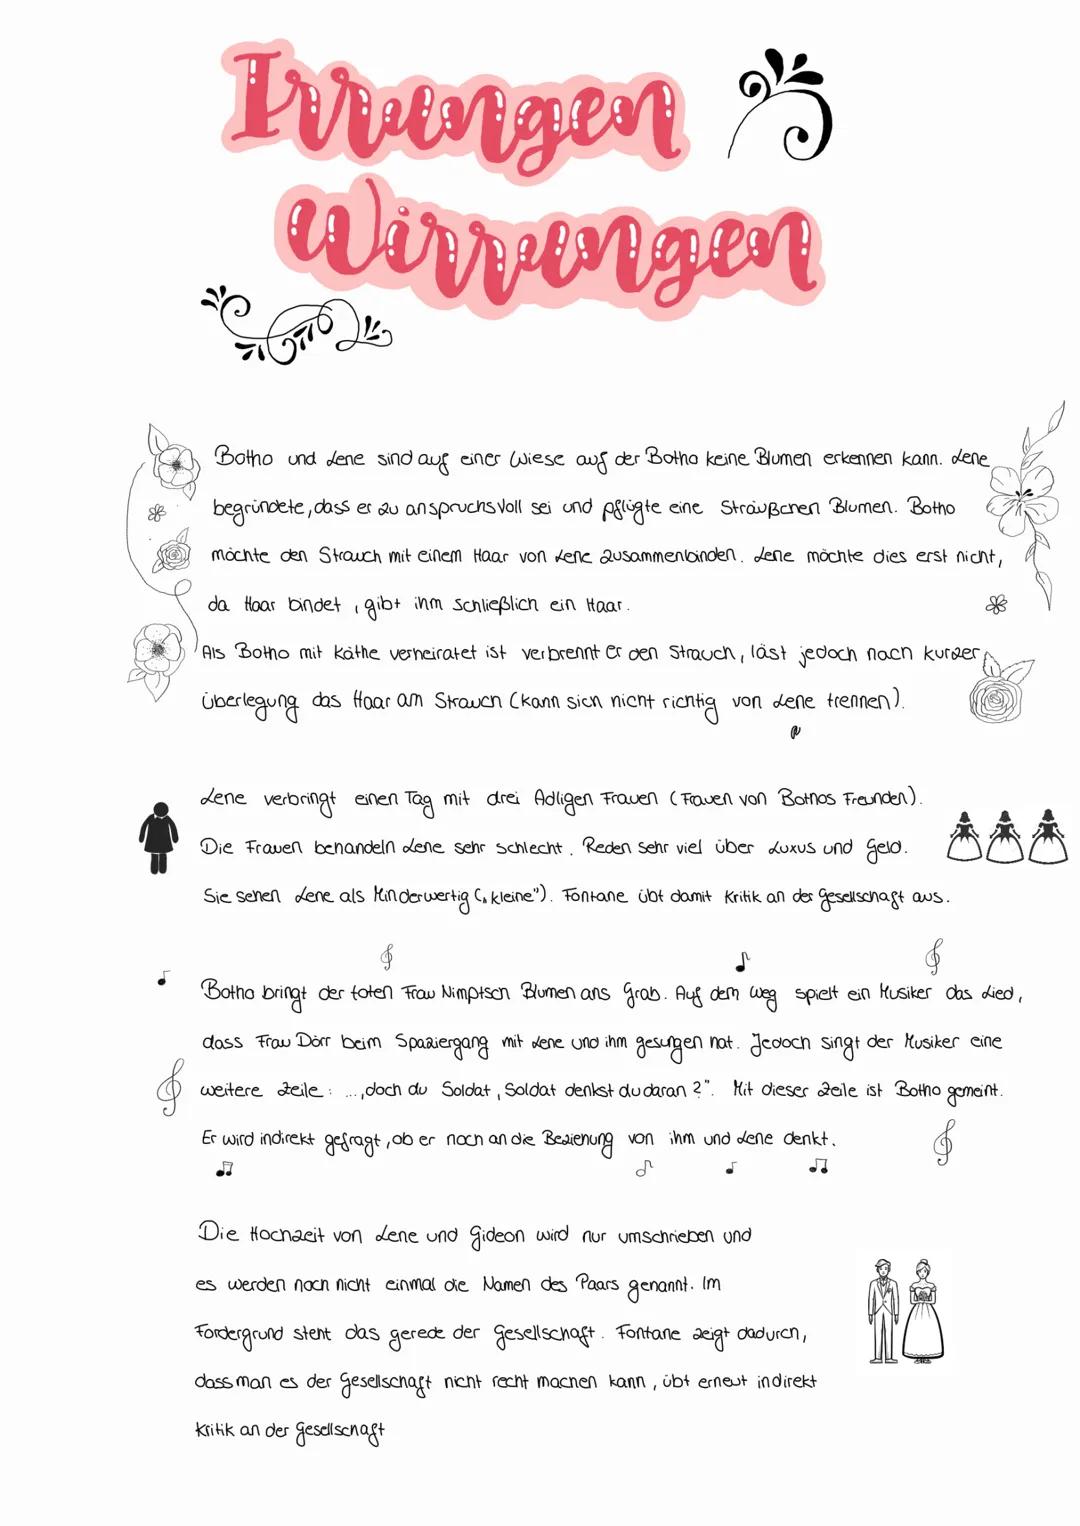 Irrungen
Wirrungen
Botho und Lene sind auf einer Wiese auf der Botho keine Blumen erkennen kann. Lene
begründete, dass er zu anspruchsvoll sei und pflügte eine Sträußchen Blumen. Botho
möchte den Strauch mit einem Haar von Lene zusammenbinden. Lene möchte dies erst nicht,
da Haar bindet, gibt ihm schließlich ein Haar.
Als Botho mit Käthe verheiratet ist verbrennt er den Strauch, läst jedoch nach kurzer
überlegung das Haar am Strauch (kann sich nicht richtig von Lene trennen).
Lene verbringt einen Tag mit drei Adligen Frauen (Frauen von Bothos Freunden).
Die Frauen behandeln Lene sehr schlecht. Reden sehr viel über Luxus und Geld.
Sie sehen Lene als Minderwertig („kleine"). Fontane übt damit Kritik an der Gesellschaft aus.
Botho bringt der toten Frau Nimptsch Blumen ans Grab. Auf dem Weg spielt ein Musiker das Lied,
dass Frau Dörr beim Spaziergang mit Lene und ihm gesungen hat. Jedoch singt der Musiker eine
weitere Zeile: ...„doch du Soldat, Soldat denkst du daran?". Mit dieser Zeile ist Botho gemeint.
Er wird indirekt gefragt, ob er noch an die Beziehung von ihm und Lene denkt.
Die Hochzeit von Lene und Gideon wird nur umschrieben und
es werden noch nicht einmal die Namen des Paars genannt. Im
Fordergrund steht das gerede der Gesellschaft. Fontane zeigt dadurch,
dass man es der Gesellschaft nicht recht machen kann, übt erneut indirekt
Kritik an der Gesellschaft